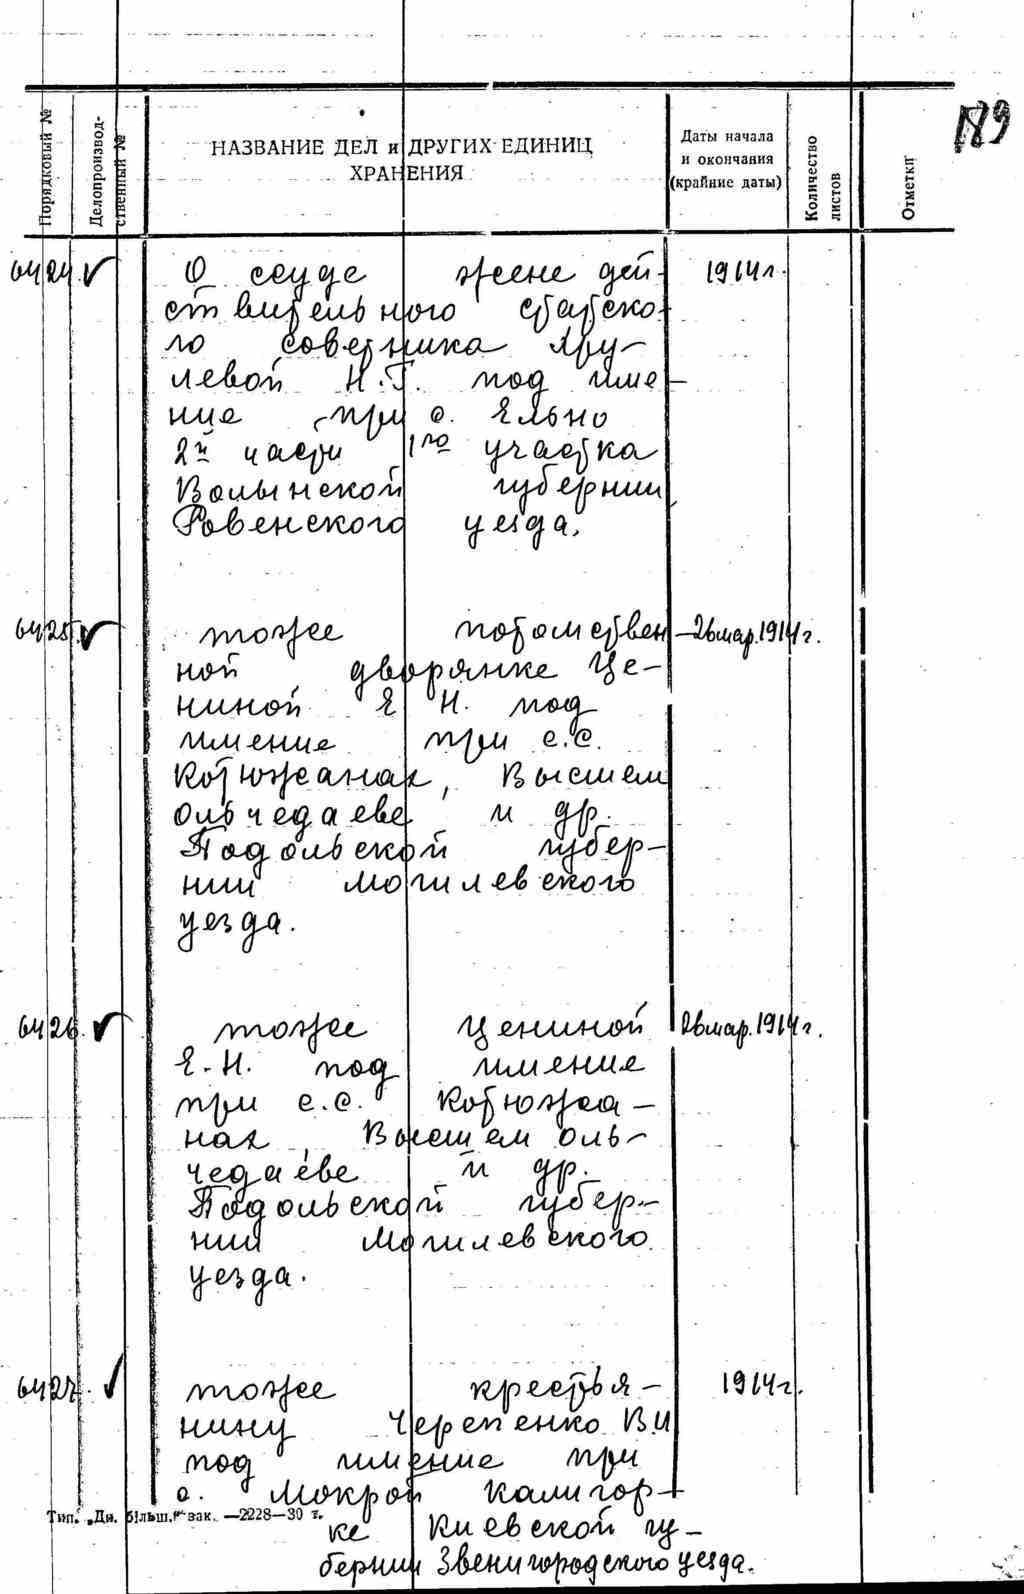 189
Порядковый №
Делопроизвод-
ственный №
НАЗВАНИЕ ДЕЛ и ДРУГИХ ЕДИНИЦ
ХРАНЕНИЯ
Даты начала
и окончания
(крайние даты)
Количество
листов
Отметки
6424. ✓ О ссуде жене дей- 1914г.
ствительного статско-
го советника Хру-
левой Н.Г. под име-
ние при с. Ельно
2й части 1го участка
Волынской губернии
Ровенского уезда.
6425. ✓ тоже потомствен- 26мар.1914г.
ной дворянке Це-
ниной Е Н. под
имение при с.с.
Котюжанах, Высшем
Ольчедаеве и др.
Подольской губер-
нии Могилевского
уезда.
6426. ✓ тоже Цениной 26мар.1914г.
Е.Н. под имение
при с.с. Котюжа-
нах, Высшем Оль-
чедаеве и др.
Подольской губер-
нии Могилевского
уезда.
6427. ✓ тоже крестья- 1914г.
нину Черепенко В.И
под имение при
с. Мокрой Калигор-
Тип. „Дн. більш." зак. —2228—30 т.
ке Киевской гу-
бернии Звенигородского уезда.